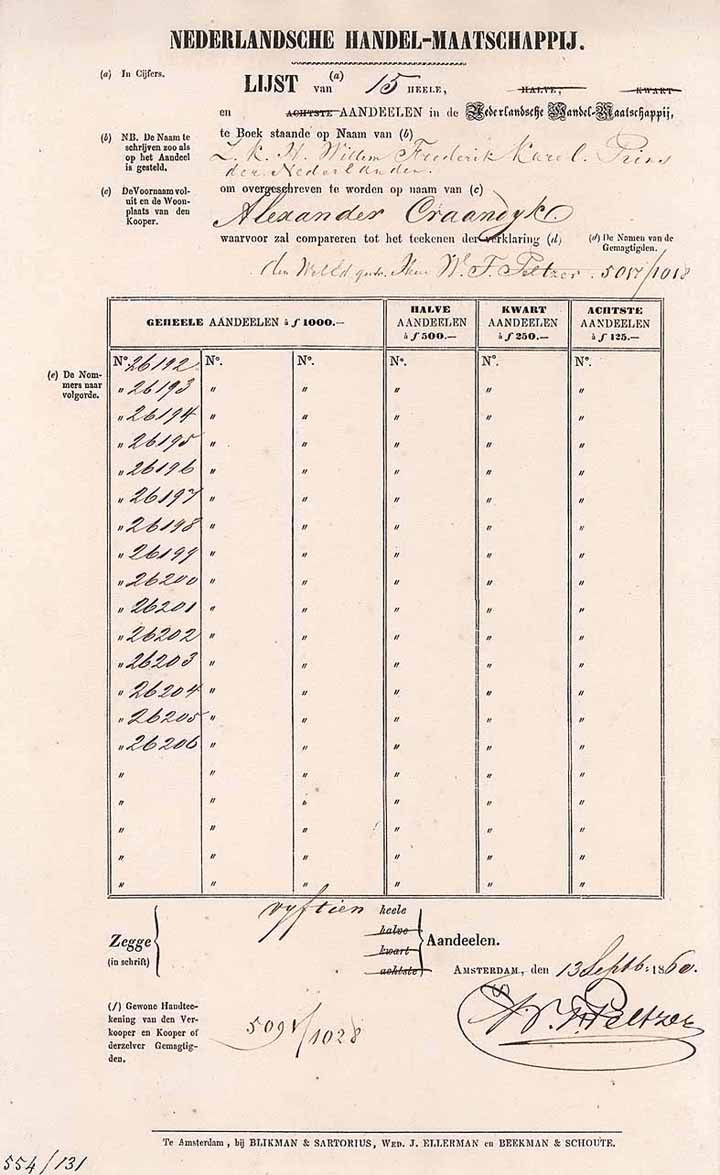 NEDERLANDSCHE HANDEL-MAATSCHAPPIJ.
(a) In Cijfers.
LIJST van (a) 15 HEELE, HALVE, KWART
en ACHTSTE AANDEELEN in de Nederlandsche Handel-Maatschappij,
(b) NB. De Naam te schrijven zoo als op het Aandeel is gesteld.
te Boek staande op Naam van (b)
Z. K. H. Willem Frederik Karel. Prins
der Nederlanden.
(c) De Voornaam voluit en de Woonplaats van den Kooper.
om overgeschreven te worden op naam van (c)
Alexander Craandyk
waarvoor zal compareren tot het teekenen der verklaring (d)
(d) De Namen van de Gemagtigden.
W. F. Peltzer
GEHEELE AANDEELEN à ƒ 1000.—
HALVE AANDEELEN à ƒ 500.—
KWART AANDEELEN à ƒ 250.—
ACHTSTE AANDEELEN à ƒ 125.—
(e) De Nommers naar volgorde.
No. 26192 No. No. No. No. No.
" 26193 " " " " "
" 26194 " " " " "
" 26195 " " " " "
" 26196 " " " " "
" 26197 " " " " "
" 26198 " " " " "
" 26199 " " " " "
" 26200 " " " " "
" 26201 " " " " "
" 26202 " " " " "
" 26203 " " " " "
" 26204 " " " " "
" 26205 " " " " "
" 26206 " " " " "
" " " " " "
" " " " " "
" " " " " "
" " " " " "
" " " " " "
Zegge (in schrift)
vyftien heele
halve
kwart
achtste
Aandeelen.
AMSTERDAM, den 13 Septb. 1860.
(f) Gewone Handteekening van den Verkooper en Kooper of derzelver Gemagtigden.
W. F. Peltzer
Te Amsterdam, bij BLIKMAN & SARTORIUS, WED. J. ELLERMAN en BEEKMAN & SCHOUTE.
554/131